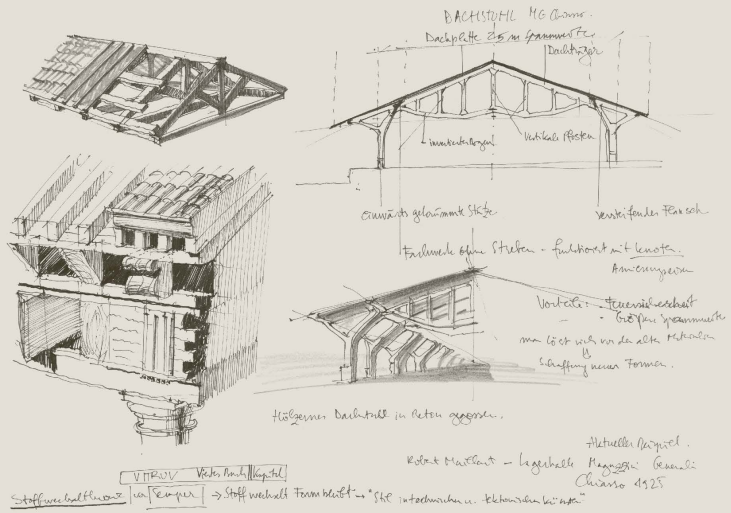 DACHSTUHL MG Chiasso.
Dachplatte 25 m Spannweite
Dachträger
invertierter Bogen
Vertikale Pfosten
Einwärts gekrümmte Stütze
Versteifender Flansch
Fachwerk ohne Streben - funktioniert mit Knoten.
Armierungseisen
Vorteile: - Feuersicherheit
- Größere Spannweite
man löst sich von den alten Materialien
Schaffung neuer Formen.
Hölzerner Dachstuhl in Beton gegossen.
Aktuelles Beispiel.
Robert Maillart - Lagerhalle Magazzini Generali
Chiasso 1925
VITRUV Viertes Buch Kapitel
Stoffwechseltheorie von Semper → Stoff wechselt Form bleibt → "Stil in technischen u. tektonischen Künsten"